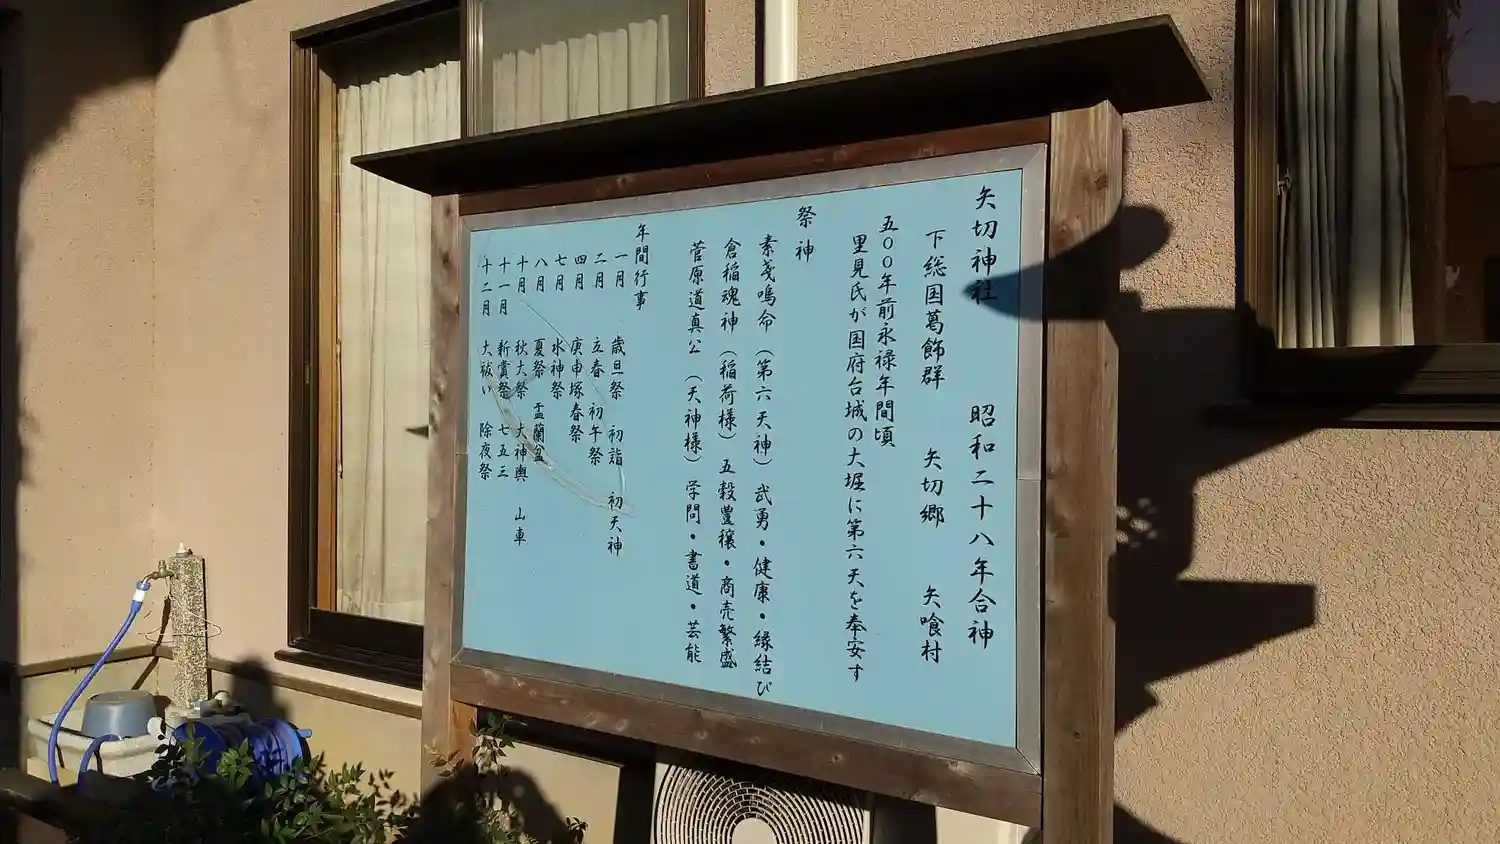 矢切神社　昭和二十八年合神
下総国葛飾群　矢切郷　矢喰村
五〇〇年前永禄年間頃
里見氏が国府台城の大堀に第六天を奉安す
祭神
素戔嗚命（第六天神）武勇・健康・縁結び
倉稲魂神（稲荷様）五穀豊穣・商売繁盛
菅原道真公（天神様）学問・書道・芸能
年間行事
一月　歳旦祭　初詣　初天神
二月　立春　初午祭
四月　庚申塚春祭
七月　水神祭
八月　夏祭　盂蘭盆
十月　秋大祭　大神輿　山車
十一月　新嘗祭　七五三
十二月　大祓い　除夜祭